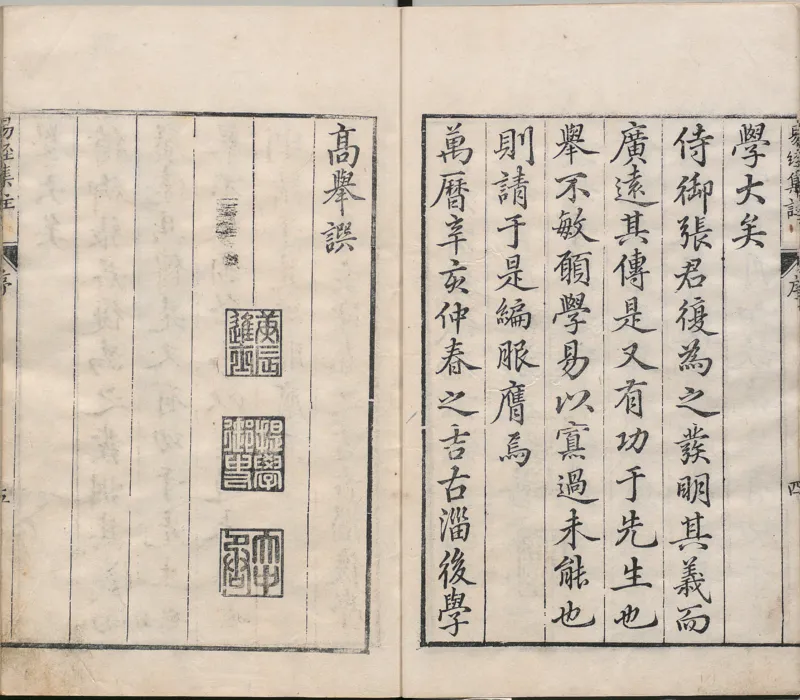 學大矣
侍御張君復為之發明其義而
廣遠其傳是又有功于先生也
舉不敏願學易以寡過未能也
則請于是編服膺焉
萬曆辛亥仲春之吉古淄後學
四
高舉譔
庚辰進士
提學御史
易經集註
序
五